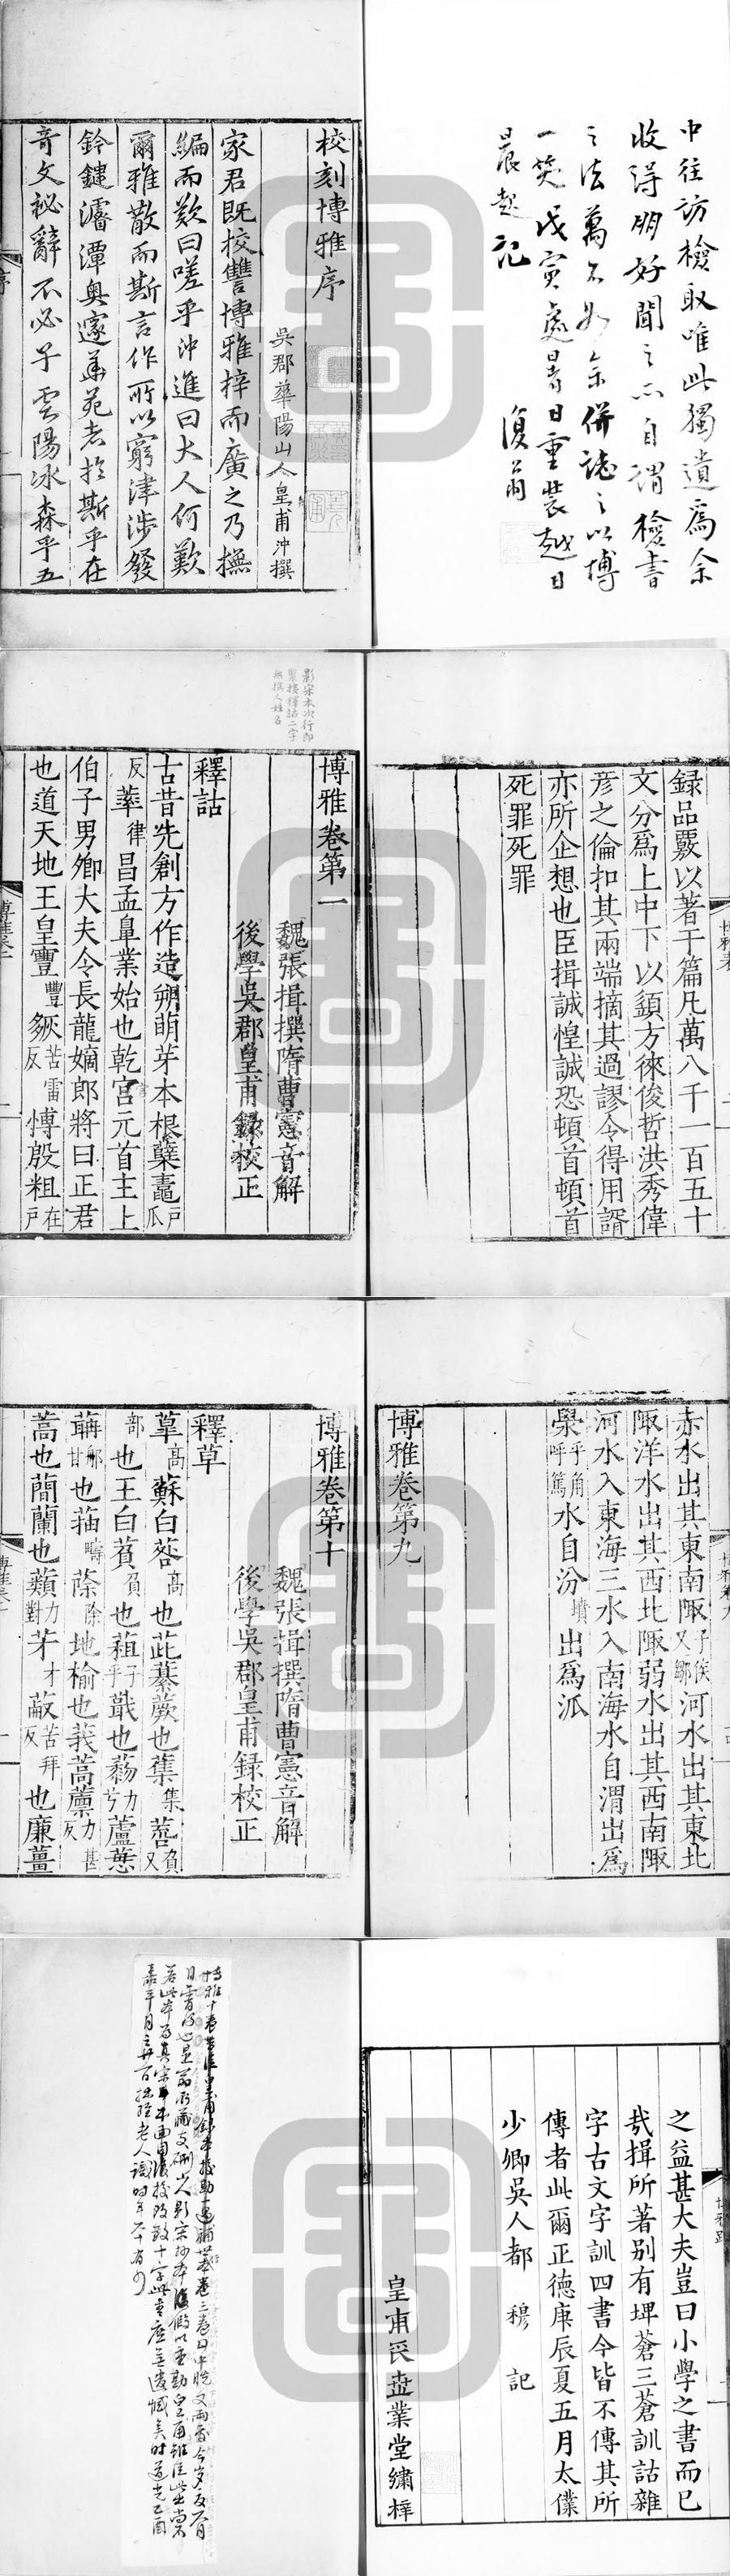 中往訪檢取唯此獨遺爲余
收得朋好聞之亦自謂檢書
之法萬不如余併誌之以博
一笑戊寅處暑日重裝越日
晨起記
復翁
校刻博雅序
吳郡華陽山人皇甫沖撰
家君既挍讐博雅梓而廣之乃撫
編而歎曰嗟乎沖進曰大人何歎
爾雅散而斯言作所以窮津涉發
鈐鍵濬潭奧邃苑者於斯乎在
奇文祕辭不必子雲陽冰森乎五
序
録品覈以著于篇凡萬八千一百五十
文分爲上中下以䫂方徠俊哲洪秀偉
彦之倫扣其兩端摘其過謬令得用諝
亦所企想也臣揖誠惶誠恐頓首頓首
死罪死罪
影宋本次行即
釋詁二字
無撰人姓名
博雅卷第一
魏張揖撰隋曹憲音解
後學吳郡皇甫録校正
釋詁
古昔先創方作造朔萌芽本根櫱鼃戶瓜
反葏律昌孟鼻業始也乾宮元首主上
伯子男卿大夫令長龍嫡郎將日正君
也道天地王皇豐豐㱡苦雷反愽殷粗在戶
赤水出其東南陬子侯又鄒河水出其東北
陬洋水出其西北陬弱水出其西南陬
河水入東海三水入南海水自渭出爲
濼乎角呼篤水自汾墳出爲派
博雅卷第九
博雅卷第十
魏張揖撰隋曹憲音解
後學吳郡皇甫録校正
釋草
䓘高蘇白䓘高也茈綦蕨也䕆集蓉負又
部也王白萯負也蒩子乎蕺也䓞力兮蘆葸
䒷郍甘也䔑疇蒢除地榆也莪蒿廩力甚反
蒿也蕳蘭也蘱力對茅才蔽苦拜反也廉薑
之益甚大夫豈曰小學之書而已
㢤揖所著别有埤蒼三蒼訓詁雜
字古文字訓四書今皆不傳其所
傳者此爾正德庚辰夏五月太僕
少卿吳人都穆記
皇甫氏世業堂繡梓